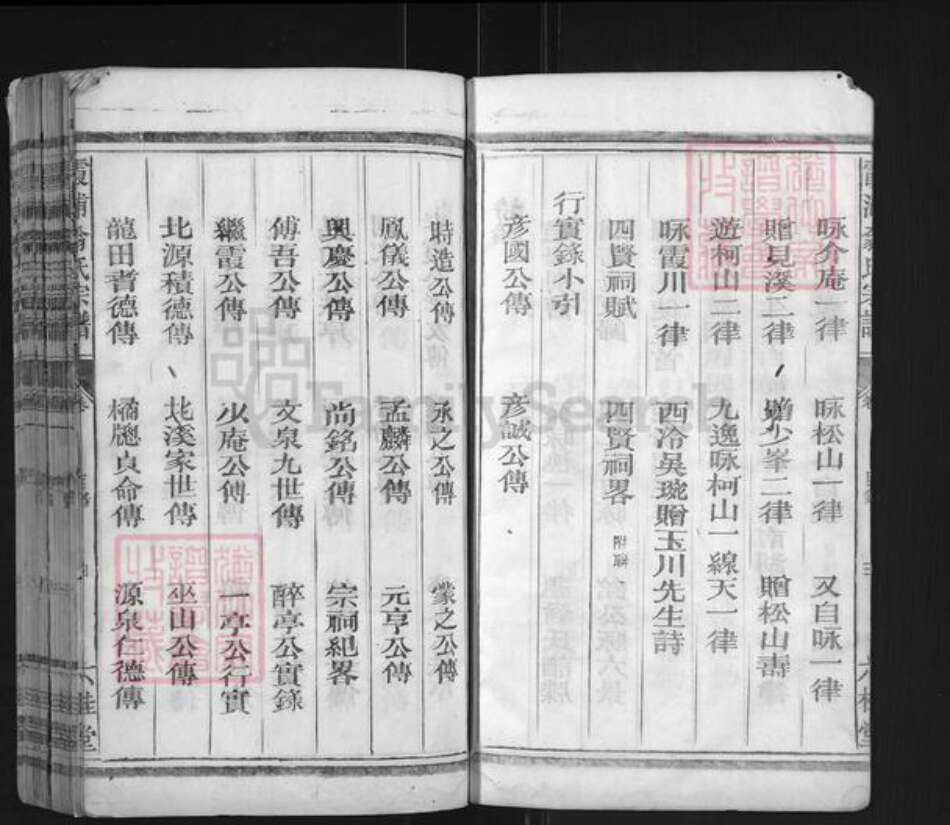 咏介庵一律 咏松山一律 又自咏一律
贈見溪二律 贈少峯二律 贈松山壽
遊柯山二律 九逸咏柯山一線天一律
咏霞川一律 西泠吳琬贈玉川先生詩
四賢祠賦 四賢祠畧
行實錄小引
彥國公傳 彥誠公傳
時造公傳 承之公傳 蒙之公傳
鳳儀公傳 孟麟公傳 元亨公傳
興慶公傳 尚銘公傳 宗祠紀畧
傅吾公傳 文泉九世傳 醉亭公實錄
繼霞公傳 少庵公傳 一亭公行實
北源積德傳 北溪家世傳 巫山公傳
龍田耆德傳 橘牕貞命傳 源泉仁德傳
氏宗譜
六桂堂
FamilySearch